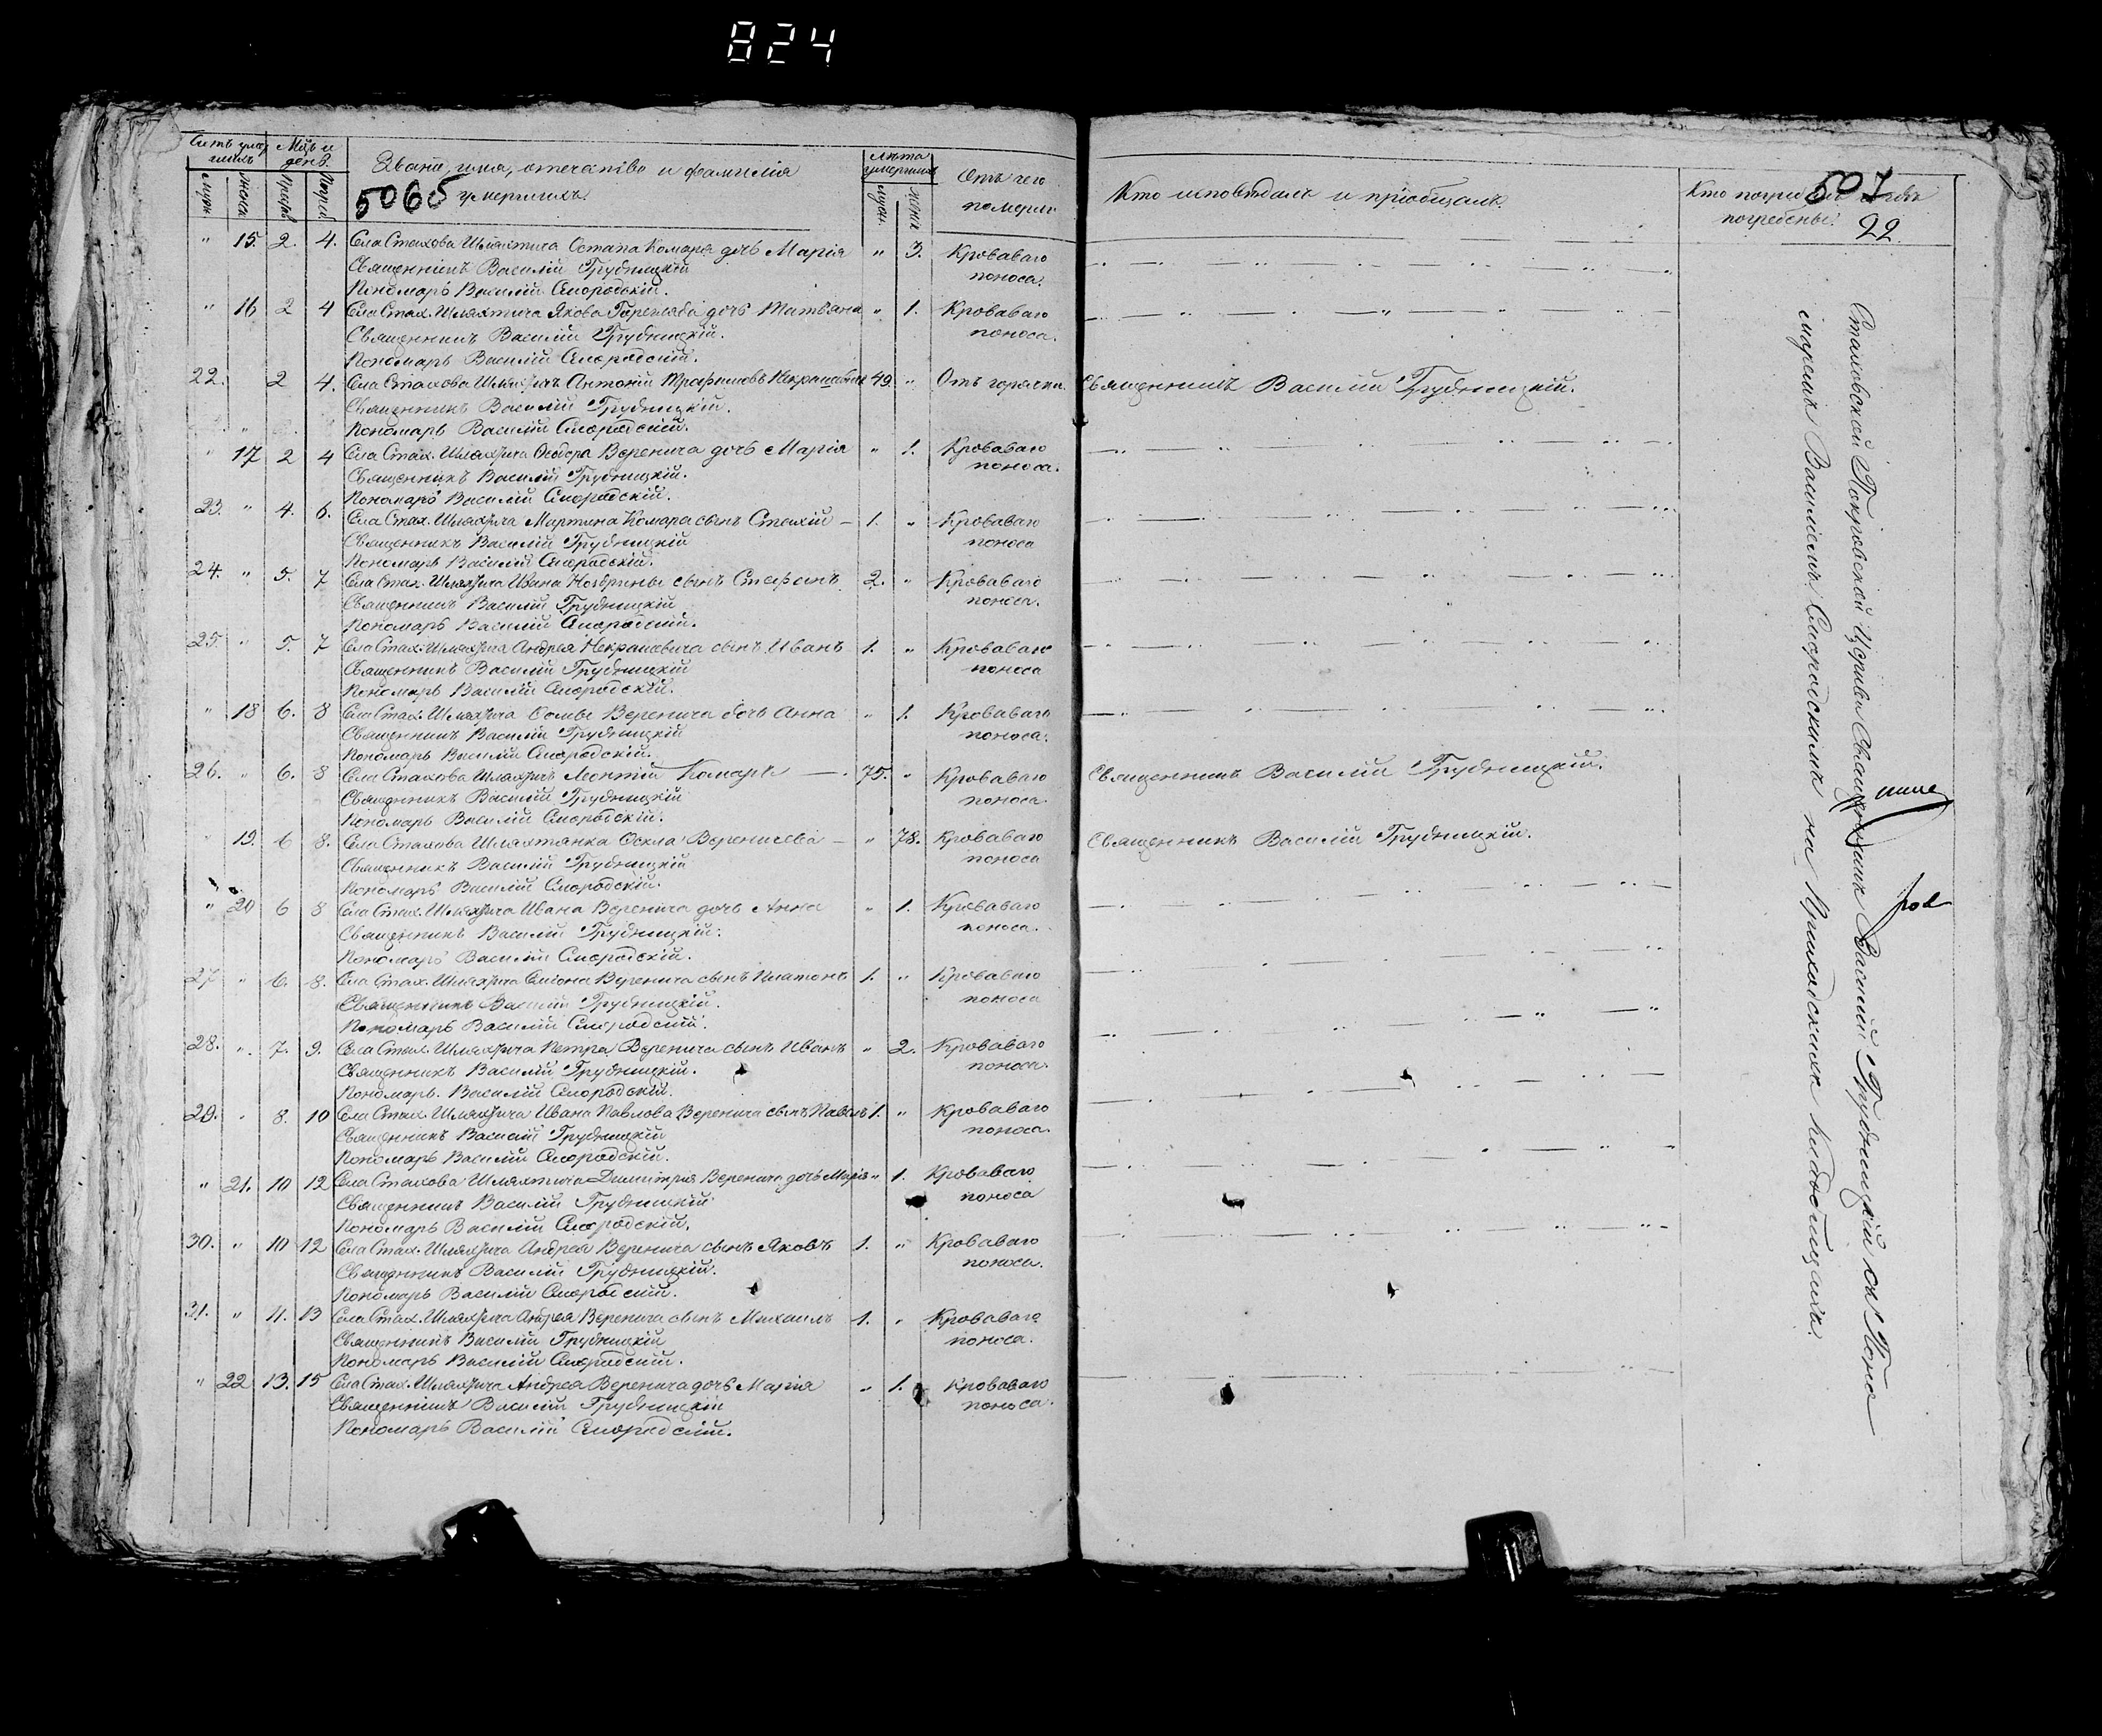 824
Счетъ умер
шихъ
Мцъ и
день.
Звание, имя, отечество и фамилія
умершихъ.
5065
лѣта
умершихъ
Отъ чего
померли
Кто исповѣдалъ и пріобщалъ.
Кто погреб
погребены.
507
22
муж
женс
муж.
женс
" 15. 2. 4. Села Стахова Шляхтича Остапа Комара дочь Марія " 3. Кроваваго
Священникъ Василій Грудницкій поноса.
Пономарь Василій Смородскій.
" 16 2 4 Села Стах. Шляхтича Якова дочь Татьяна " 1. Кроваваго
Священникъ Василій Грудницкій. поноса.
Пономарь Василій Смородскій.
22. 2 4. Села Стахова Шляхтичъ Антоній Некрашевичъ 49. " Отъ горячки Священникъ Василій Грудницкій.
Священникъ Василій Грудницкій.
Пономарь Василій Смородскій.
" 17 2 4 Села Стах. Шляхтича Феодора Веренича дочь Марія " 1. Кроваваго
Священникъ Василій Грудницкій. поноса.
Пономарь Василій Смородскій.
23. " 4. 6. Села Стах. Шляхтича Мартина Комара сынъ Стахій 1. " Кроваваго
Священникъ Василій Грудницкій поноса
Пономарь Василій Смородскій.
24. " 5. 7 Села Стах. Шляхтича Ивана сынъ Стефанъ 2. " Кроваваго
Священникъ Василій Грудницкій поноса.
Пономарь Василій Смородскій.
25. " 5. 7 Села Стах. Шляхтича Андрея Некрашевича сынъ Иванъ 1. " Кроваваго
Священникъ Василій Грудницкій поноса
Пономарь Василій Смородскій.
" 18 6. 8 Села Стах. Шляхтича Фомы Веренича дочь Анна " 1. Кроваваго
Священникъ Василій Грудницкій поноса.
Пономарь Василій Смородскій.
26. " 6. 8 Села Стахова Шляхтичъ Леонтій Комаръ 75. " Кроваваго Священникъ Василій Грудницкій.
Священникъ Василій Грудницкій поноса.
Пономарь Василій Смородскій.
" 19. 6 8. Села Стахова Шляхтянка Фекла Вереничева " 78. Кроваваго Священникъ Василій Грудницкій.
Священникъ Василій Грудницкій поноса
Пономарь Василій Смородскій.
" 20 6 8 Села Стах. Шляхтича Ивана Веренича дочь Анна " 1. Кроваваго
Священникъ Василій Грудницкій. поноса.
Пономарь Василій Смородскій.
27 " 6. 8. Села Стах. Шляхтича Симона Веренича сынъ Платонъ 1. " Кроваваго
Священникъ Василій Грудницкій. поноса
Пономарь Василій Смородскій.
28. " 7. 9. Села Стах. Шляхтича Петра Веренича сынъ Иванъ " 2. Кроваваго
Священникъ Василій Грудницкій. поноса.
Пономарь. Василій Смородскій.
29. " 8. 10 Села Стах. Шляхтича Ивана Павлова Веренича сынъ Павелъ 1. " Кроваваго
Священникъ Василій Грудницкій поноса.
Пономарь Василій Смородскій.
" 21. 10 12 Села Стахова Шляхтича Димитрія Веренича дочь Марія " 1. Кроваваго
Священникъ Василій Грудницкій поноса
Пономарь Василій Смородскій.
30. " 10 12 Села Стах. Шляхтича Андрея Веренича сынъ Яковъ 1. " Кроваваго
Священникъ Василій Грудницкій. поноса.
Пономарь Василій Смородскій.
31. " 11. 13 Села Стах. Шляхтича Андрея Веренича сынъ Михаилъ 1. " Кроваваго
Священникъ Василій Грудницкій поноса.
Пономарь Василій Смородскій.
" 22 13. 15 Села Стах. Шляхтича Андрея Веренича дочь Марія " 1. Кроваваго
Священникъ Василій Грудницкій поноса.
Пономарь Василій Смородскій.
Стаховской Покровской Церкви Священникъ Василій Грудницкій съ Поно
маремъ Василіемъ Смородскимъ на Приходскихъ Кладбищахъ.